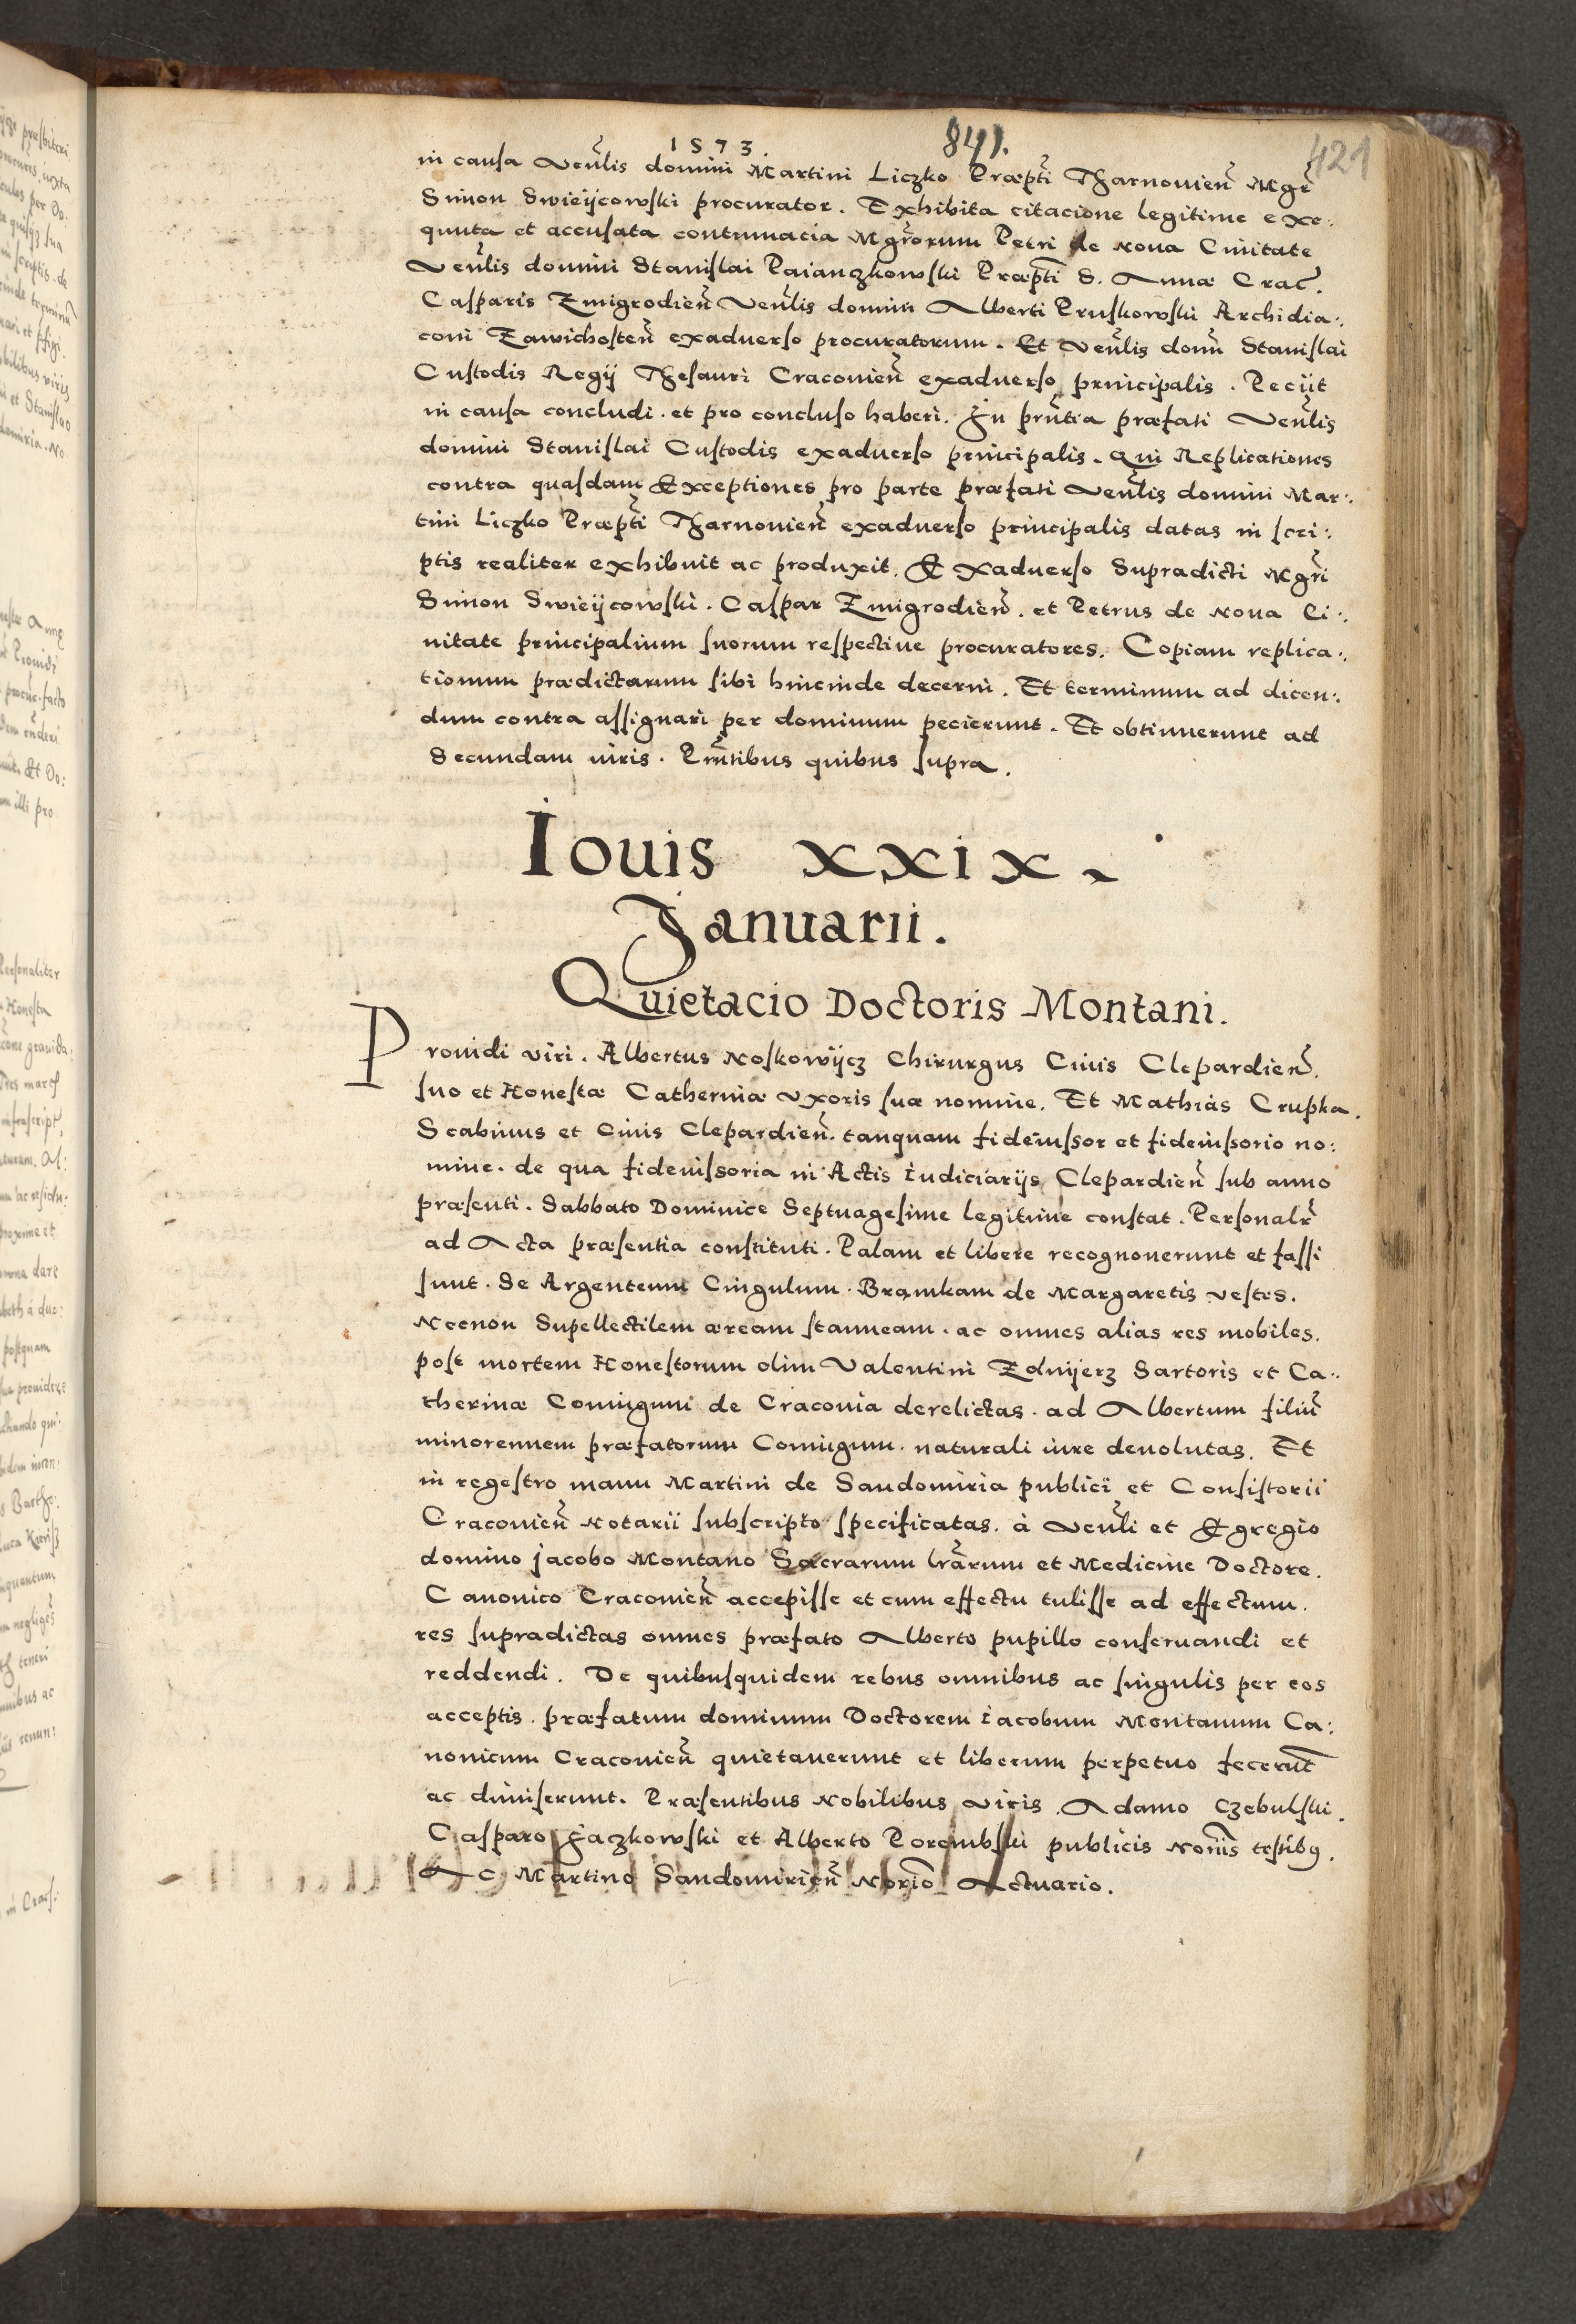 1573.
841.
421
in causa Venlis domini Martini Liczko Præpti Tharnouien Mgr
Simon Swieijcowski procurator. Exhibita citacione legitime exe:
quuta et accusata contumacia Mgrorum Petri de Noua Ciuitate
Venlis domini Stanislai Paianczkowski Præpti S. Annæ Crac.
Casparis Zmigrodien Venlis domini Alberti Pruskowski Archidia:
coni Zawichosten exaduerso procuratorum. Et Venlis domn Stanislai
Custodis Regij Thesauri Craconien exaduerso principalis. Peciit
in causa concludi. et pro concluso haberi. In prntia præfati Venlis
domini Stanislai Custodis exaduerso principalis. Qui Replicationes
contra quasdam Exceptiones pro parte præfati Venlis domini Mar:
tini Liczko Præpti Tharnouien exaduerso principalis datas in scri:
ptis realiter exhibuit ac produxit. Exaduerso Supradicti Mgri
Simon Swieijcowski. Caspar Zmigrodien. et Petrus de Noua Ci:
uitate principalium suorum respectiue procuratores. Copiam replica:
tionum prædictarum sibi hincinde decerni. Et terminum ad dicen:
dum contra assignari per dominum pecierunt. Et obtinuerunt ad
Secundam iuris. Prntibus quibus supra.
Iouis xxix.
Januarii.
Quietacio Doctoris Montani.
Prouidi viri. Albertus Noskowijcz Chirurgus Ciuis Clepardien.
suo et Honestæ Catherinæ Vxoris suæ nomine. Et Mathias Crupka.
Scabinus et Ciuis Clepardien. tanquam fideiussor et fideiussorio no:
mine. de qua fideiussoria in Actis Iudiciarijs Clepardien sub anno
præsenti. Sabbato Dominice Septuagesime legitime constat. Personalr
ad Acta præsentia constituti. Palam et libere recognouerunt et fassi
sunt. Se Argenteum Cingulum. Bramkam de Margaretis vestes.
Necnon Supellectilem æream stanneam. ac omnes alias res mobiles.
post mortem Honestorum olim Valentini Zolnijerz Sartoris et Ca:
therinæ Coniugum de Cracouia derelictas. ad Albertum filiu
minorennem præfatorum Coniugum. naturali iure deuolutas. Et
in regestro manu Martini de Sandomiria publici et Consistorii
Cracouien Notarii subscripto specificatas. à Venli et Egregio
domino Jacobo Montano Sacrarum lrarum et Medicine Doctore.
Canonico Cracouien accepisse et cum effectu tulisse ad effectum.
res supradictas omnes præfato Alberto pupillo conseruandi et
reddendi. De quibusquidem rebus omnibus ac singulis per eos
acceptis. præfatum dominum Doctorem Iacobum Montanum Ca:
nonicum Cracouien quietauerunt et liberum perpetuo fecerut
ac dimiserunt. Præsentibus Nobilibus Viris. Adamo Czebulski.
Casparo Jaczkowski et Alberto Porembski publicis Noriis testibus.
Ac Martino Sandomirien Norio Actuario.